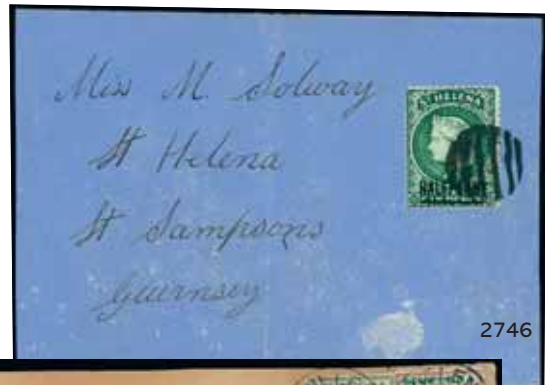 Miss M. Solway
St Helena
St Sampsons
Guernsey
ST HELENA
HALFPENNY
2746